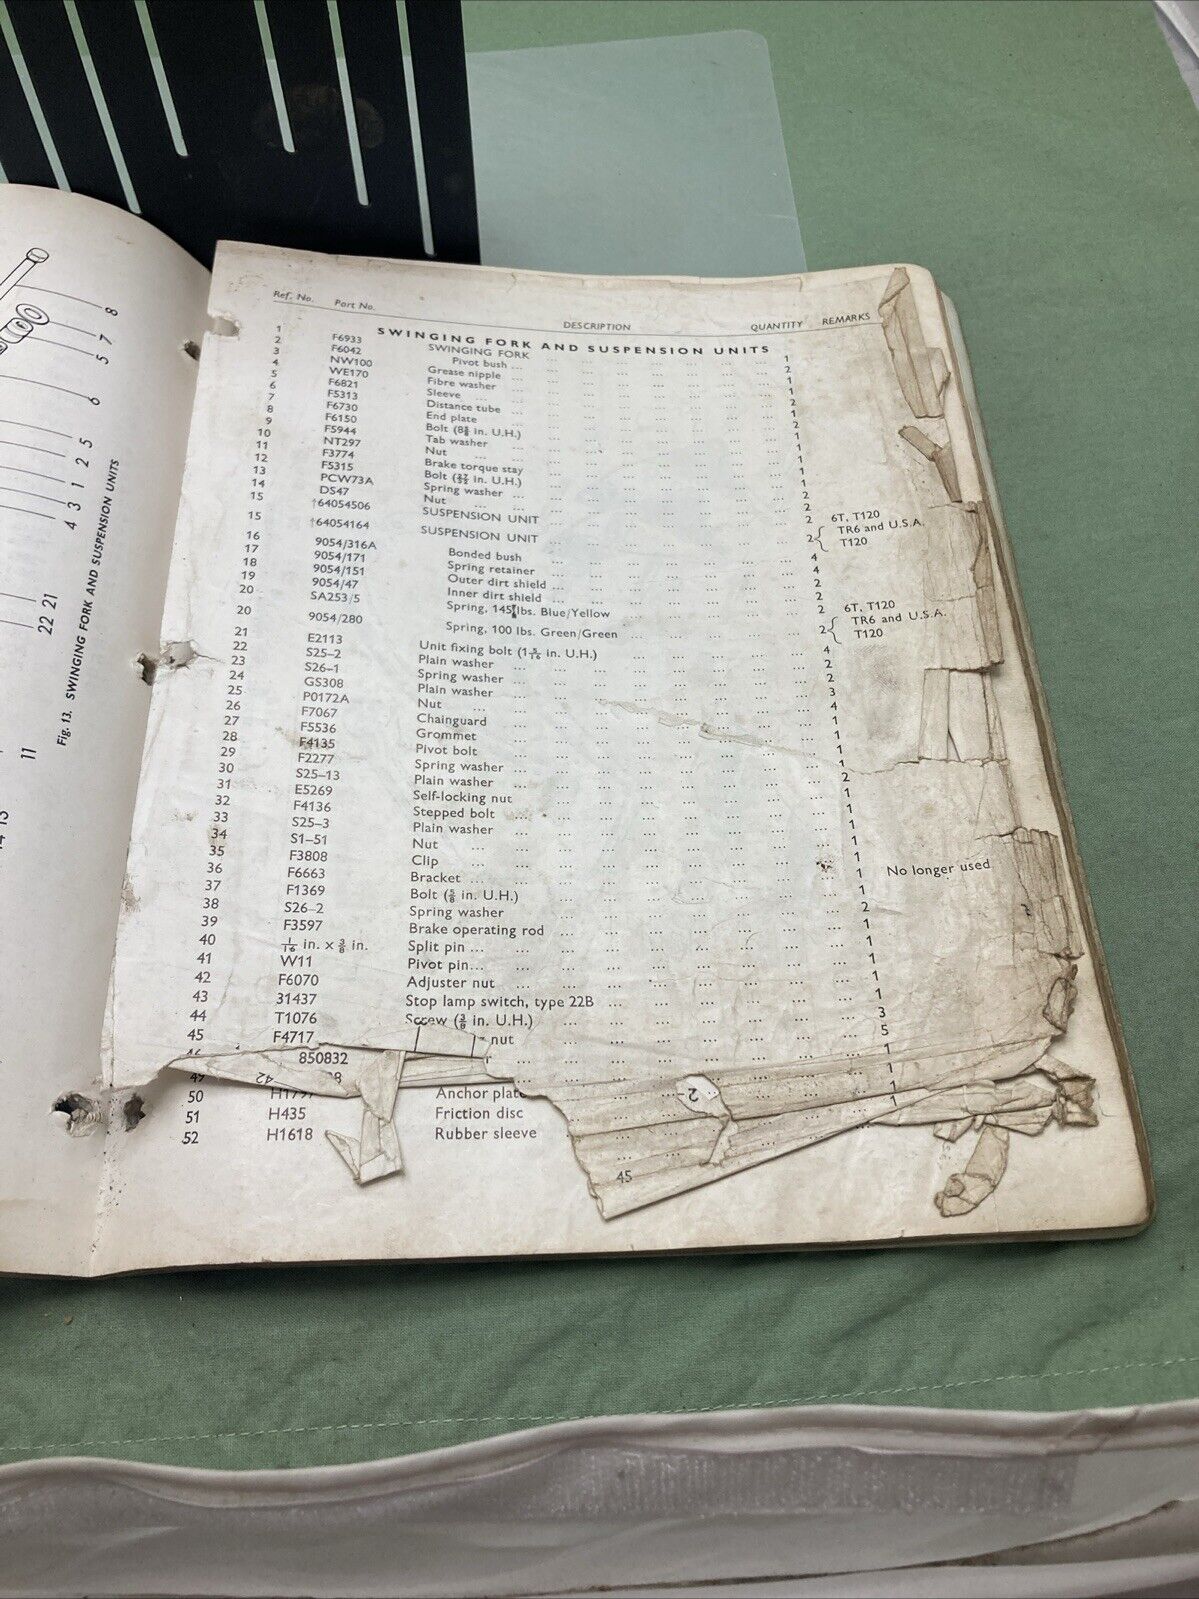 8
7
5
6
5
2
1
3
4
22 21
11
Fig. 13. SWINGING FORK AND SUSPENSION UNITS
Ref. No. Part No. DESCRIPTION QUANTITY REMARKS
SWINGING FORK AND SUSPENSION UNITS
1 F6933 SWINGING FORK ... 1
2 F6042 Pivot bush ... 2
3 NW100 Grease nipple ... 1
4 WE170 Fibre washer ... 1
5 F6821 Sleeve ... 2
6 F5313 Distance tube ... 1
7 F6730 End plate ... 2
8 F6150 Bolt (8⅜ in. U.H.) ... 1
9 F5944 Tab washer ... 1
10 NT297 Nut ... 1
11 F3774 Brake torque stay ... 1
12 F5315 Bolt (27/32 in. U.H.) ... 1
13 PCW73A Spring washer ... 2
14 DS47 Nut ... 2
15 †64054506 SUSPENSION UNIT ... 2 6T, T120
15 †64054164 SUSPENSION UNIT ... 2 { TR6 and U.S.A. T120
16 9054/316A Bonded bush ... 4
17 9054/171 Spring retainer ... 4
18 9054/151 Outer dirt shield ... 2
19 9054/47 Inner dirt shield ... 2
20 SA253/5 Spring, 145 lbs. Blue/Yellow ... 2 6T, T120
20 9054/280 Spring, 100 lbs. Green/Green ... 2 { TR6 and U.S.A. T120
21 E2113 Unit fixing bolt (1 5/16 in. U.H.) ... 4
22 S25–2 Plain washer ... 2
23 S26–1 Spring washer ... 2
24 GS308 Plain washer ... 3
25 P0172A Nut ... 4
26 F7067 Chainguard ... 1
27 F5536 Grommet ... 1
28 F4135 Pivot bolt ... 1
29 F2277 Spring washer ... 1
30 S25–13 Plain washer ... 2
31 E5269 Self-locking nut ... 1
32 F4136 Stepped bolt ... 1
33 S25–3 Plain washer ... 1
34 S1–51 Nut ... 1
35 F3808 Clip ... 1
36 F6663 Bracket ... 1 No longer used
37 F1369 Bolt (⅝ in. U.H.) ... 1
38 S26–2 Spring washer ... 2
39 F3597 Brake operating rod ... 1
40 1/16 in. × ⅜ in. Split pin ... 1
41 W11 Pivot pin ... 1
42 F6070 Adjuster nut ... 1
43 31437 Stop lamp switch, type 22B ... 1
44 T1076 Screw (⅜ in. U.H.) ... 3
45 F4717 nut ... 5
850832
49
42
2
50 Anchor plate
51 H435 Friction disc
52 H1618 Rubber sleeve
45